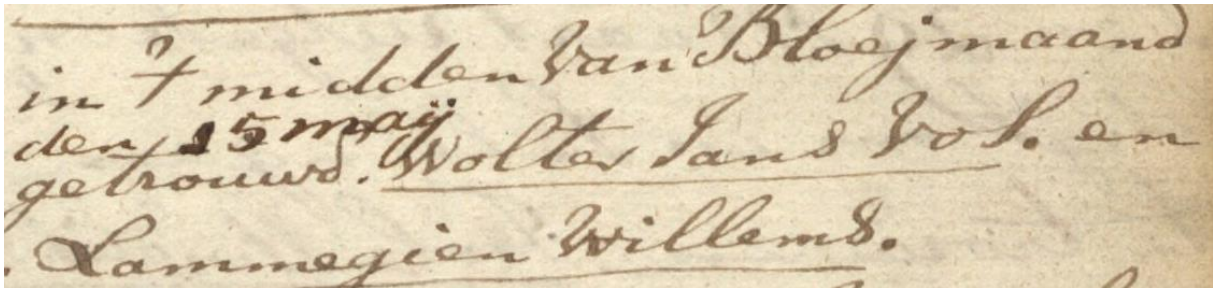 in 't midden van Bloejmaand
den 15 maÿ
getrouwd. Wolter Jans Vos. en
Lammegien Willems.